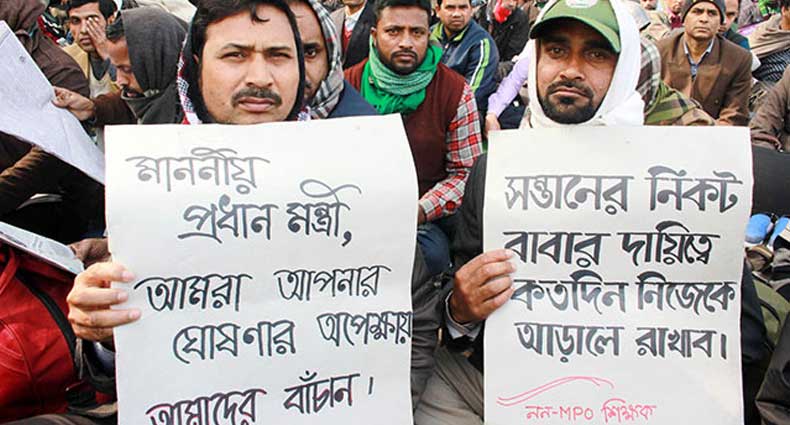 মাননীয়
প্রধান মন্ত্রী,
আমরা আপনার
ঘোষণার অপেক্ষায়
আমাদের বাঁচান।
সন্তানের নিকট
বাবার দায়িত্বে
কতদিন নিজেকে
আড়ালে রাখাব।
নন-MPO শিক্ষক